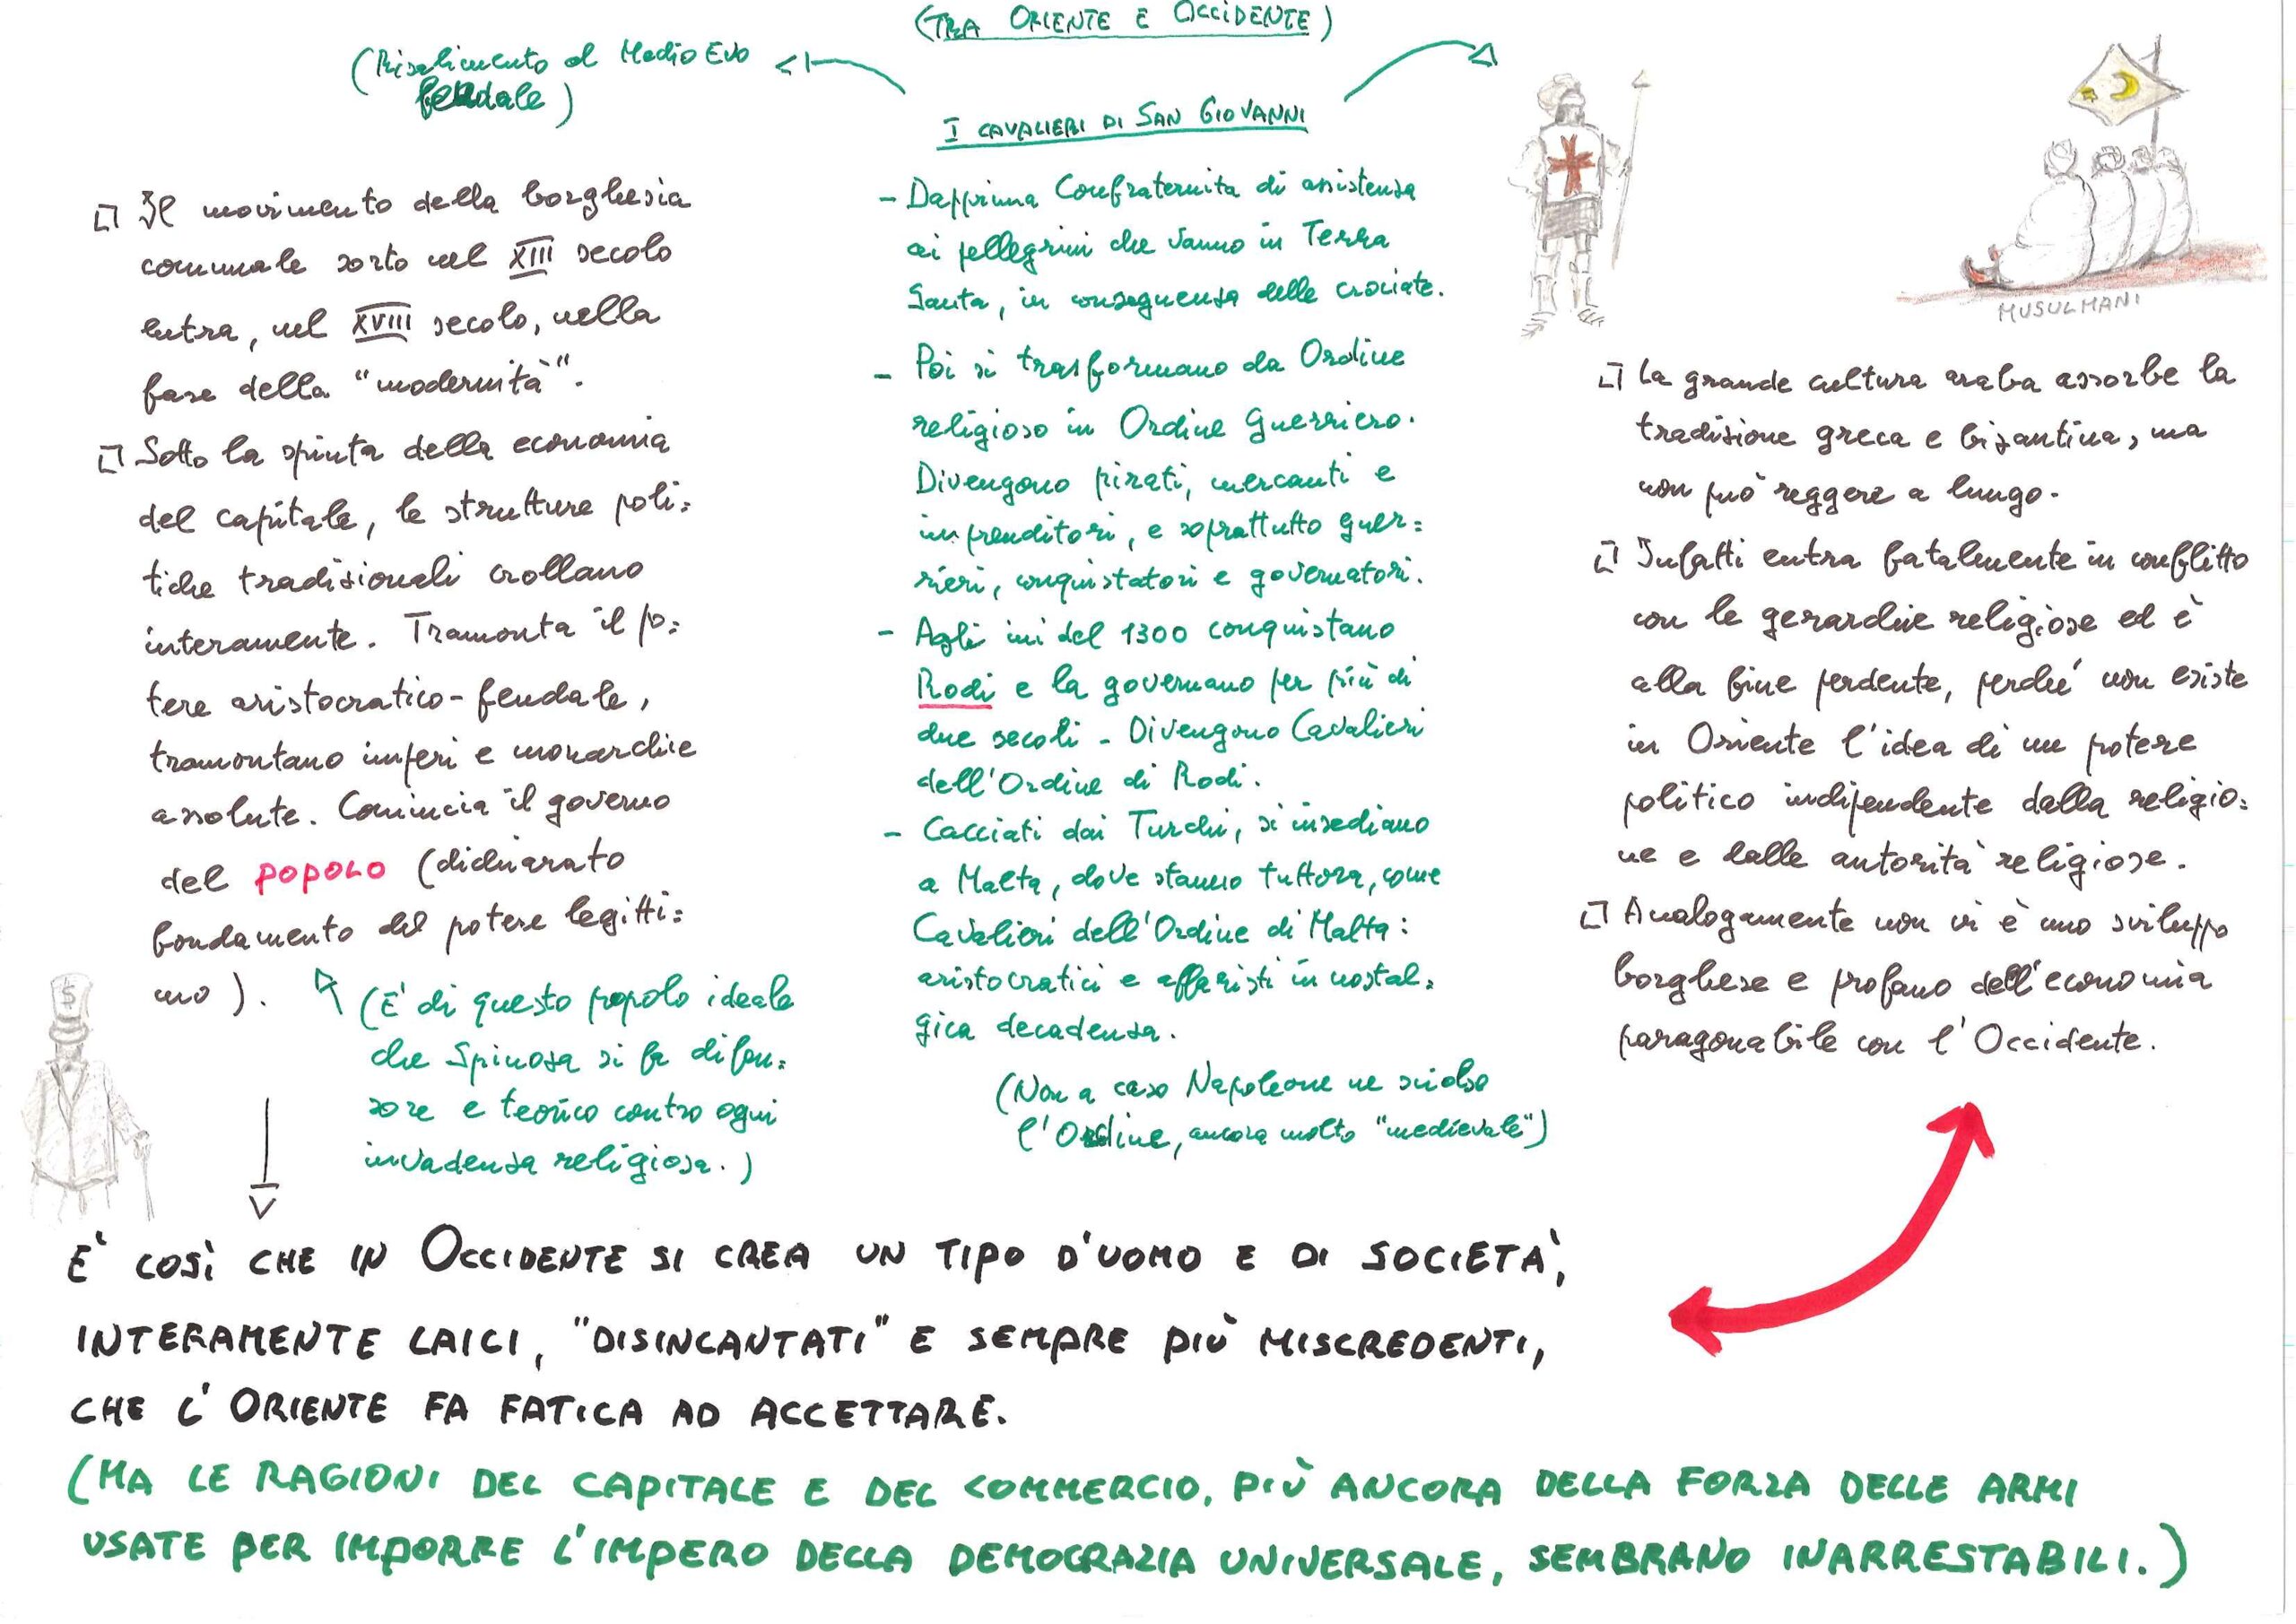 (TRA ORIENTE E OCCIDENTE)
(Risalimento al Medio Evo
feudale)
I CAVALIERI DI SAN GIOVANNI
□ Il movimento della borghesia
comunale sorto nel XIII secolo
entra, nel XVIII secolo, nella
fase della "modernità".
□ Sotto la spinta della economia
del capitale, le strutture poli=
tiche tradizionali crollano
interamente. Tramonta il po=
tere aristocratico-feudale,
tramontano imperi e monarchie
assolute. Comincia il governo
del POPOLO (dichiarato
fondamento del potere legitti=
mo).
(E' di questo popolo ideale
che Spinoza si fa difen=
sore e teorico contro ogni
invadenza religiosa.)
- Dapprima Confraternita di assistenza
ai pellegrini che vanno in Terra
Santa, in conseguenza delle crociate.
- Poi si trasformano da Ordine
religioso in Ordine Guerriero.
Divengono pirati, mercanti e
imprenditori, e soprattutto guer=
rieri, conquistatori e governatori.
- Agli ini del 1300 conquistano
Rodi e la governano per più di
due secoli - Divengono Cavalieri
dell'Ordine di Rodi.
- Cacciati dai Turchi, si insediano
a Malta, dove stanno tuttora, come
Cavalieri dell'Ordine di Malta:
aristocratici e affaristi in nostal=
gica decadenza.
(Non a caso Napoleone ne sciolse
l'Ordine, ancora molto "medievale")
MUSULMANI
□ La grande cultura araba assorbe la
tradizione greca e bizantina, ma
non può reggere a lungo.
□ Infatti entra fatalmente in conflitto
con le gerarchie religiose ed è
alla fine perdente, perché non esiste
in Oriente l'idea di un potere
politico indipendente dalla religio=
ne e dalle autorità religiose.
□ Analogamente non vi è uno sviluppo
borghese e profano dell'economia
paragonabile con l'Occidente.
E' COSÌ CHE IN OCCIDENTE SI CREA UN TIPO D'UOMO E DI SOCIETA',
INTERAMENTE LAICI, "DISINCANTATI" E SEMPRE PIÙ MISCREDENTI,
CHE L'ORIENTE FA FATICA AD ACCETTARE.
(MA LE RAGIONI DEL CAPITALE E DEL COMMERCIO, PIÙ ANCORA DELLA FORZA DELLE ARMI
USATE PER IMPORRE L'IMPERO DELLA DEMOCRAZIA UNIVERSALE, SEMBRANO INARRESTABILI.)